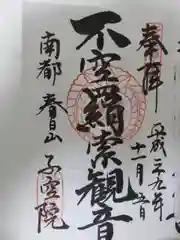 奉拝
平成二九年
十一月五日
不空羂索観音
南都 春日山
不空院